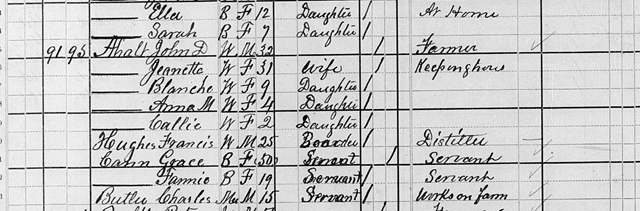 Ella B F 12 Daughter / At Home
Sarah B F 7 Daughter /
91 95 Ahalt John D W M 32 / Farmer
Jeanette W F 31 Wife / Keeping house
Blanche W F 9 Daughter /
Anna M W F 4 Daughter /
Callie W F 2 Daughter /
Hughes Francis W M 25 Boarder / Distiller
Cann Grace B F 50 Servant / Servant
Fannie B F 19 Servant / Servant
Butler Charles Mu M 15 Servant / Works on farm